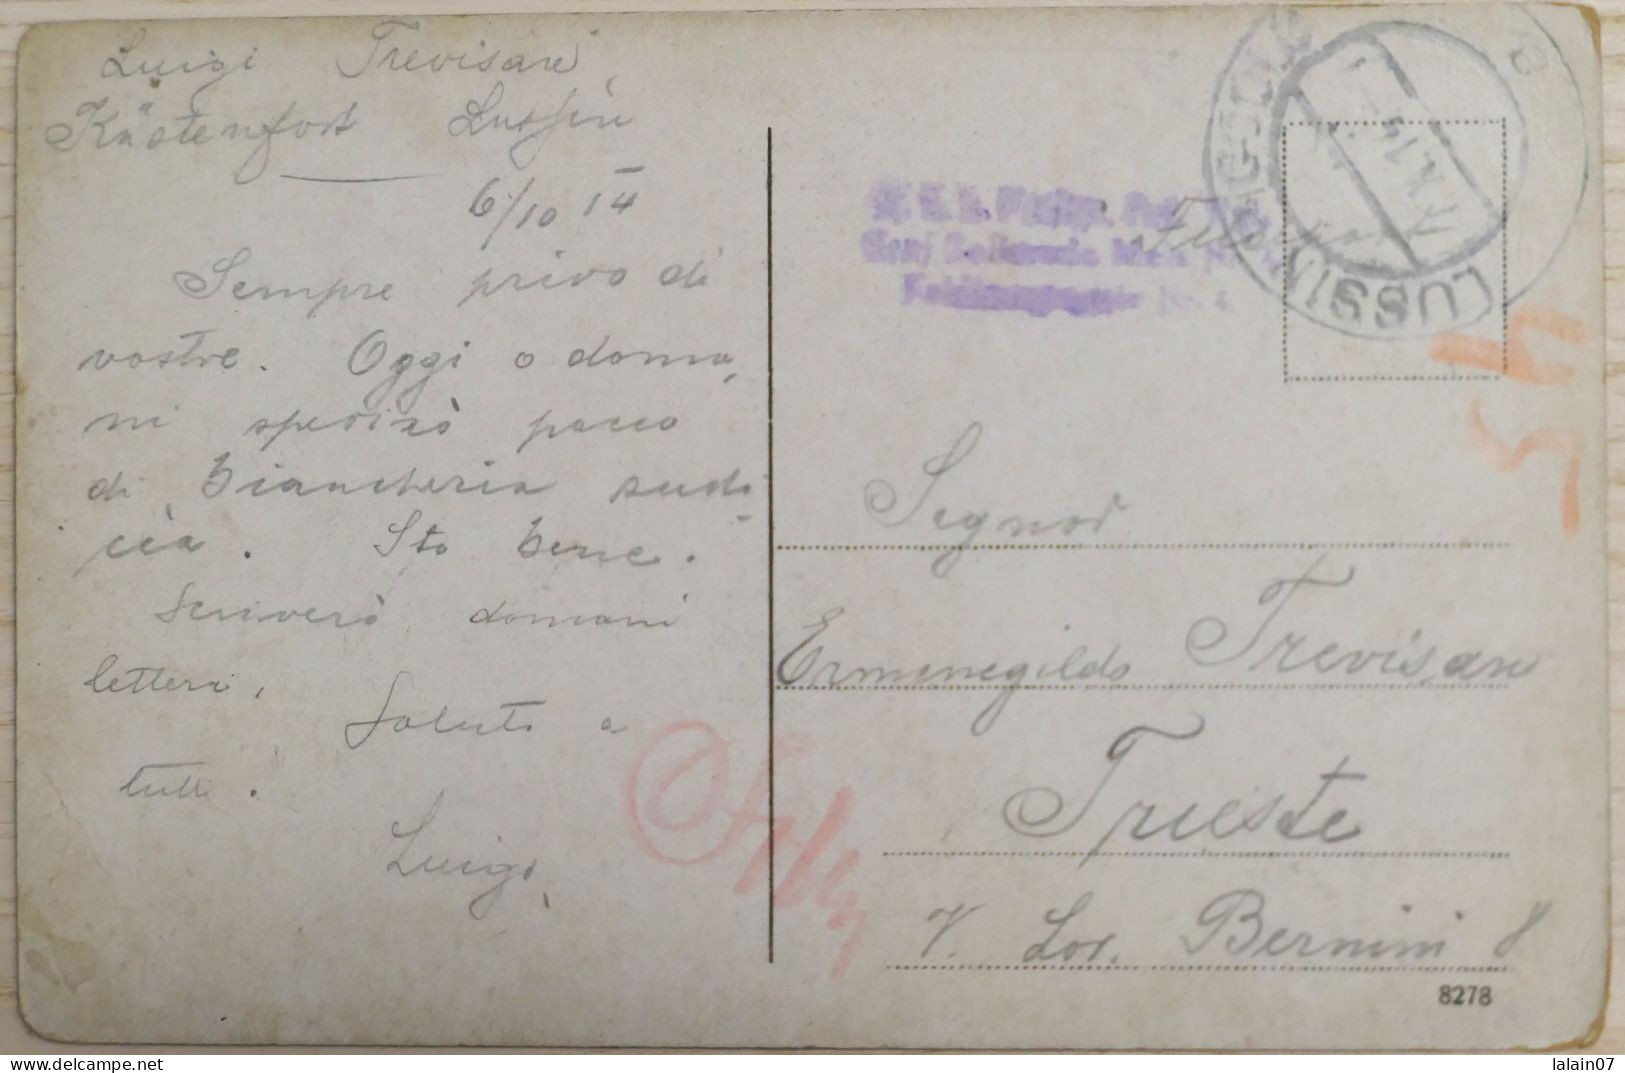 Luigi Trevisan,
Küstenfort Lussin
6/10 14
Sempre privo di
vostre. Oggi o doma,
ni spedirò pacco
di biancheria sudi
cia. Sto bene.
Scriverò domani
lettera. Saluti a
tutti.
Luigi.
Feldpost
LUSSIN
X.14
Segnor
Ermenegildo Trevisan
Trieste
V. Lor. Bernini 8
8278